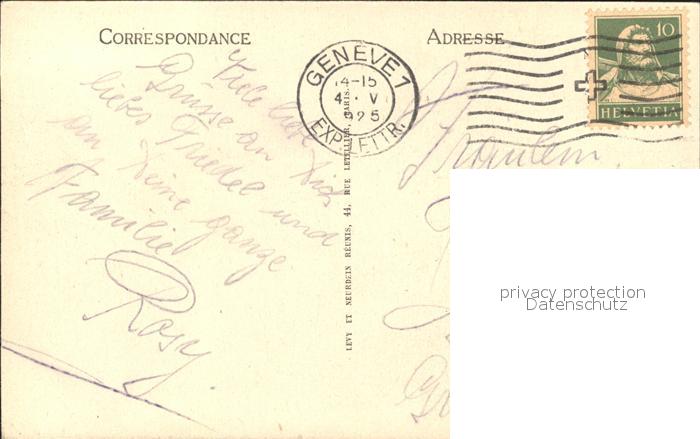 CORRESPONDANCE
ADRESSE
GENÈVE 1
14-15
4 · V
1925
EXP. LETTR.
10
HELVETIA
Viele liebe
Grüsse an Dich
liebes Friedel und
an Deine ganze
Familie
Rosy.
LEVY ET NEURDEIN RÉUNIS, 44, RUE LETELLIER, PARIS.
Fräulein
privacy protection
Datenschutz